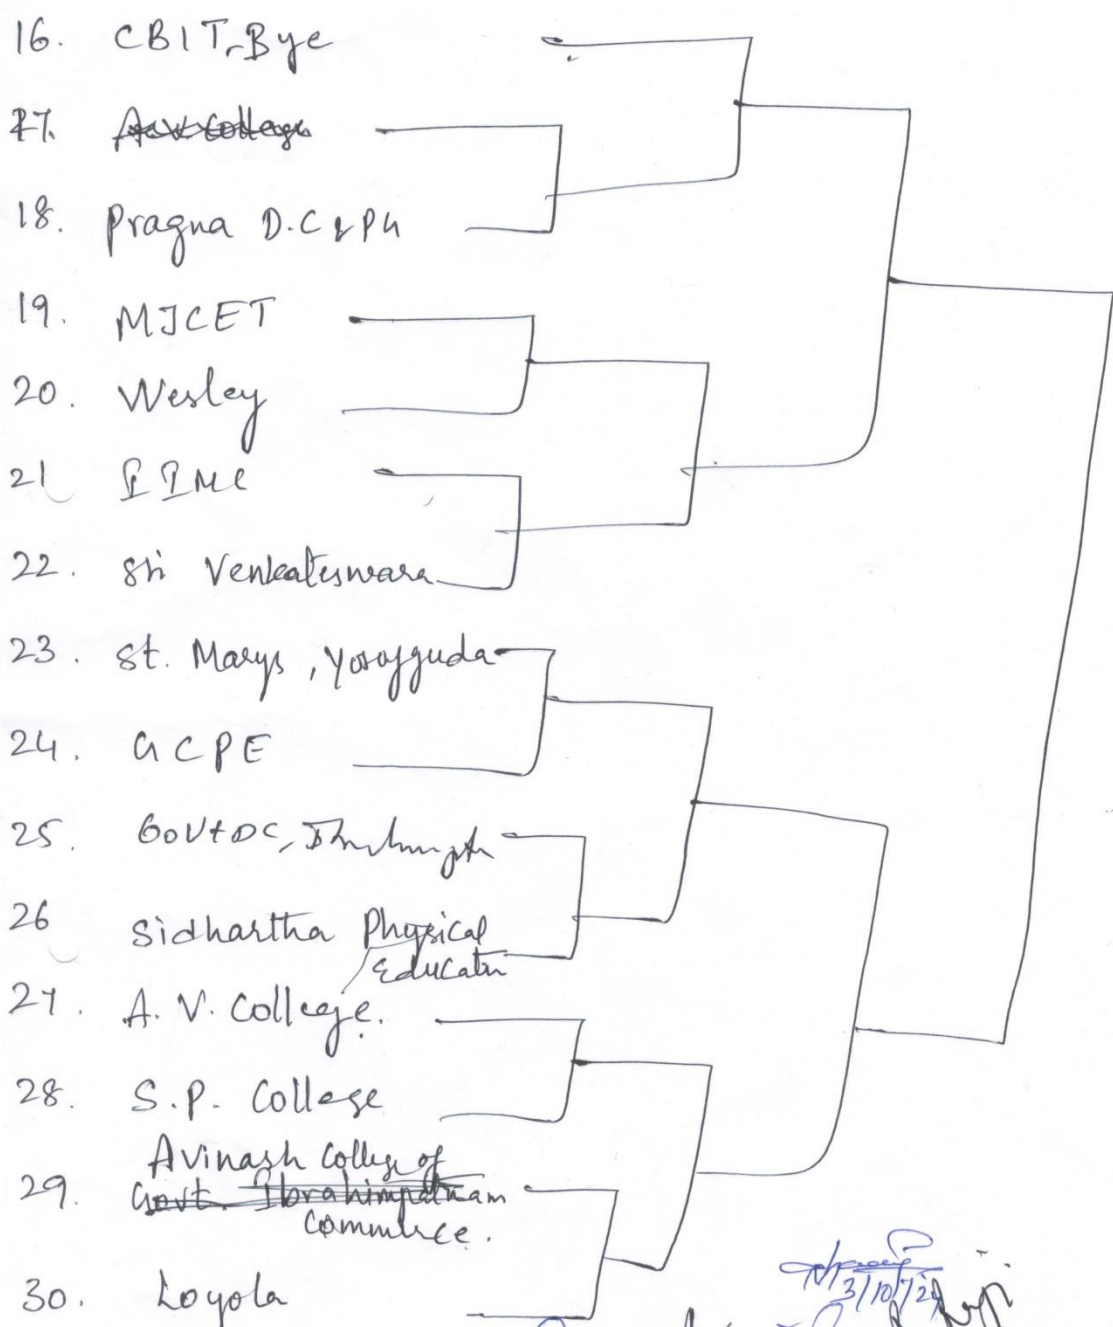 16. CBIT, Bye
17. A.V. College
18. Pragna D.C & PG
19. MJCET
20. Wesley
21 IIMC
22. Sri Venkateswara
23. St. Marys, Yousfguda
24. GCPE
25. Govt DC,
26 Sidhartha Physical
Educatin
27. A. V. College.
28. S.P. College
Avinash College of
29. Govt. Ibrahimpatnam
Commerce.
30. Loyola
3/10/24